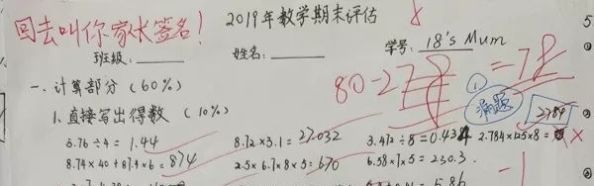 回去叫你家长签名！
2019年数学期末评估
班级：
姓名：
学号：18's Mum
一、计算部分（60%）
80-2
=78
①
漏题
2784
1. 直接写出得数（10%）
5.76÷4= 1.44
8.72×3.1= 27.032
3.472÷8=0.434
2.784×125×8=
8.74×40+87.4×6= 874
2.5×6.7×8×5=670
6.58×7×5=230.3
-1
5.86
5